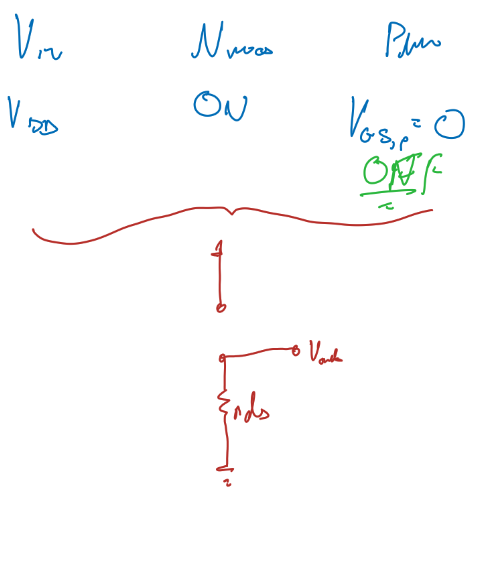 Vin Nmos Pmos
VDD ON VGS,P = 0
OFF
Vout
rds